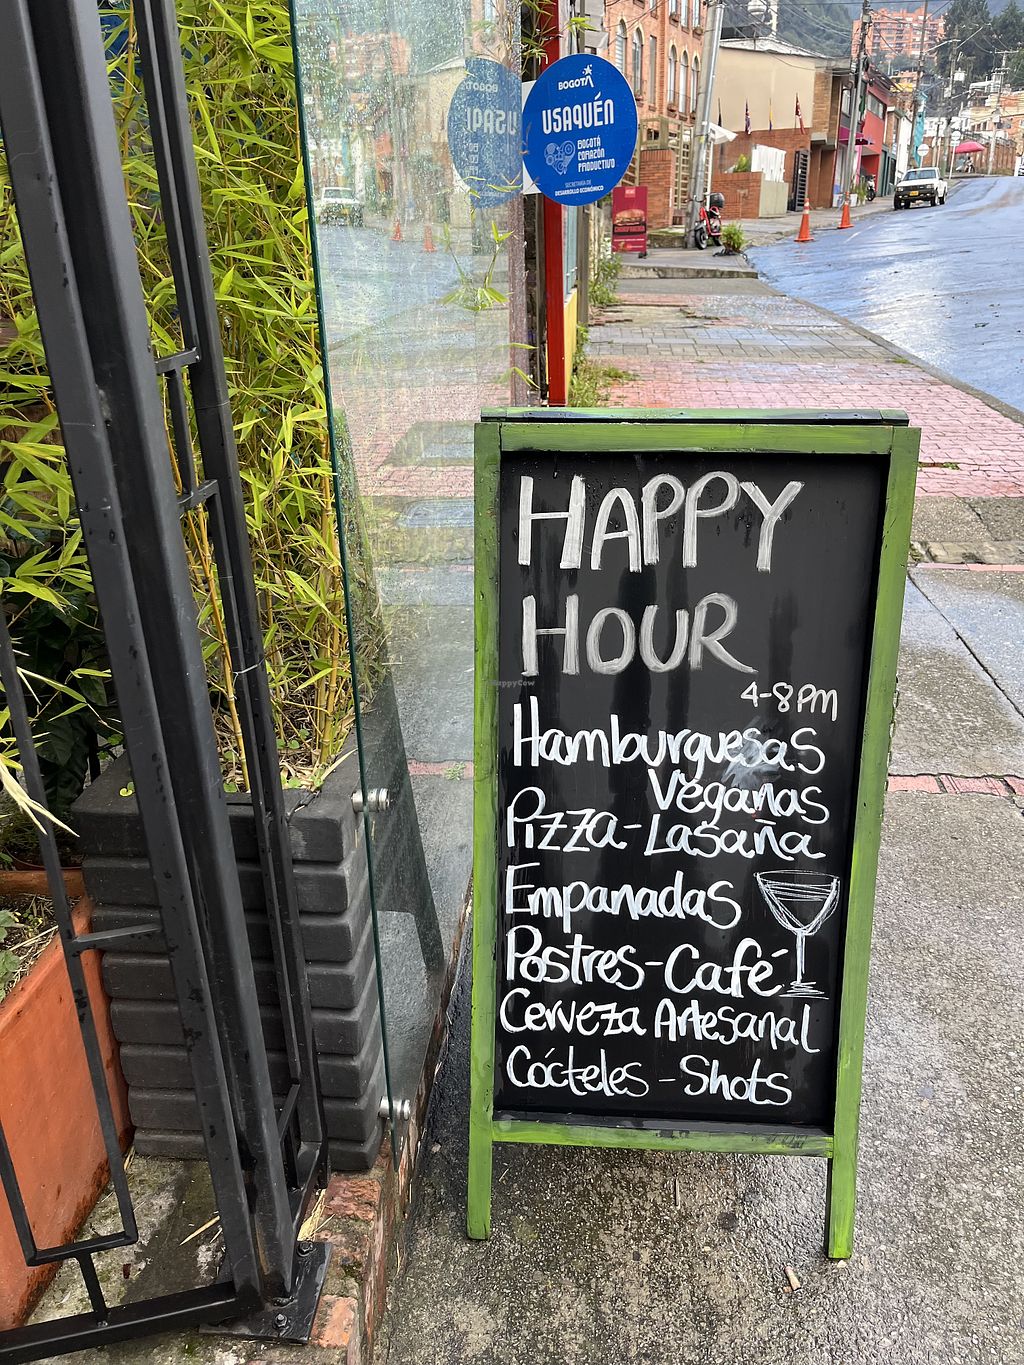 BOGOTÁ
USAQUÉN
BOGOTÁ
CORAZÓN
PRODUCTIVO
SECRETARÍA DE
DESARROLLO ECONÓMICO
HAPPY
HOUR
4-8PM
HappyCow
Hamburguesas
Veganas
Pizza-Lasaña
Empanadas
Postres-Café
Cerveza Artesanal
Cócteles-Shots